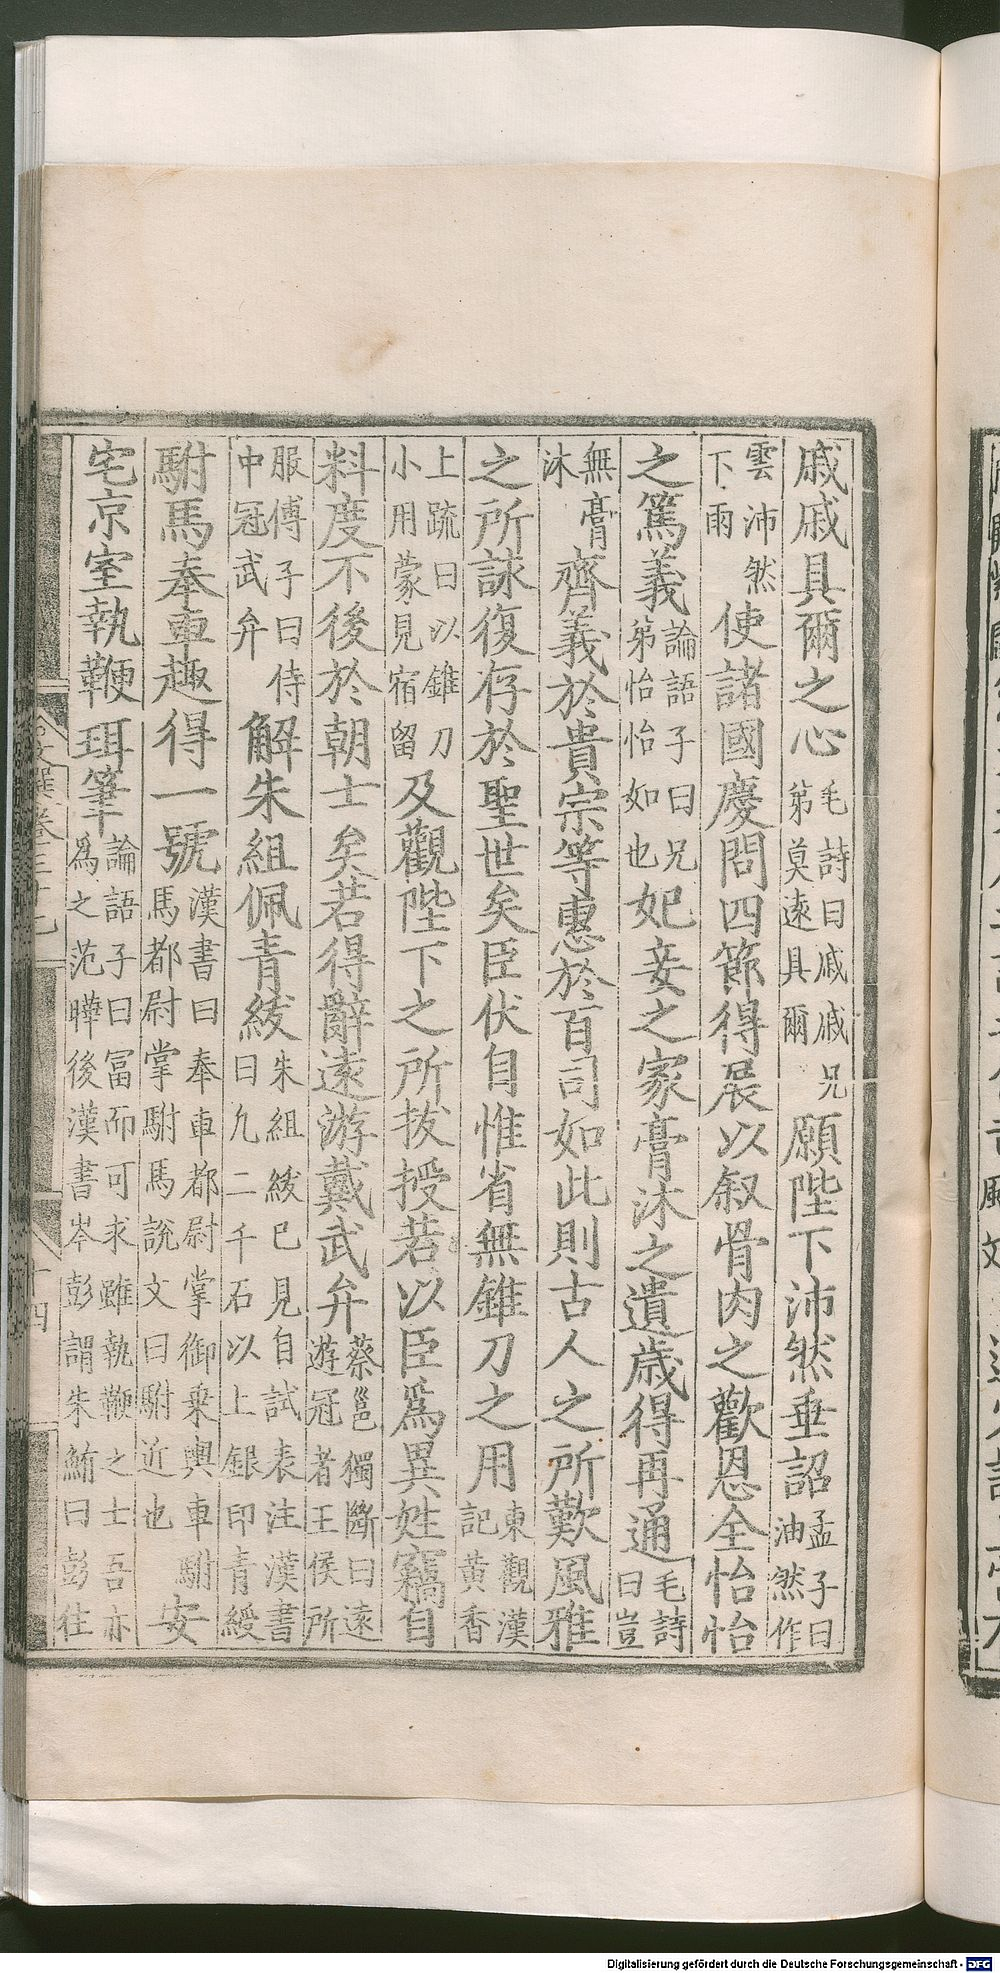 戚戚具爾之心毛詩曰戚戚兄弟莫遠具爾願陛下沛然垂詔孟子曰油然作
雲沛然下雨使諸國慶問四節得展以叙骨肉之歡恩全怡怡
之篤義論語子曰兄弟怡怡如也妃妾之家膏沐之遺歲得再通毛詩曰豈
無膏沐齊義於貴宗等惠於百司如此則古人之所歎風雅
之所詠復存於聖世矣臣伏自惟省無錐刀之用東觀漢記黃香
上疏曰以錐刀小用蒙見宿留及觀陛下之所拔授若以臣爲異姓竊自
料度不後於朝士矣若得辭遠游戴武弁蔡邕獨斷曰遠遊冠者王侯所
服傅子曰侍中冠武弁解朱組佩青紱朱組紱已見自試表注漢書曰九二千石以上銀印青綬
駙馬奉車趣得一號漢書曰奉車都尉掌御乘輿車駙馬都尉掌駙馬說文曰駙近也安
宅京室執鞭珥筆論語子曰冨而可求雖執鞭之士吾亦爲之范曄後漢書岑彭謂朱鮪曰彭往
文選卷三十七
十四
Digitalisierung gefördert durch die Deutsche Forschungsgemeinschaft - DFG